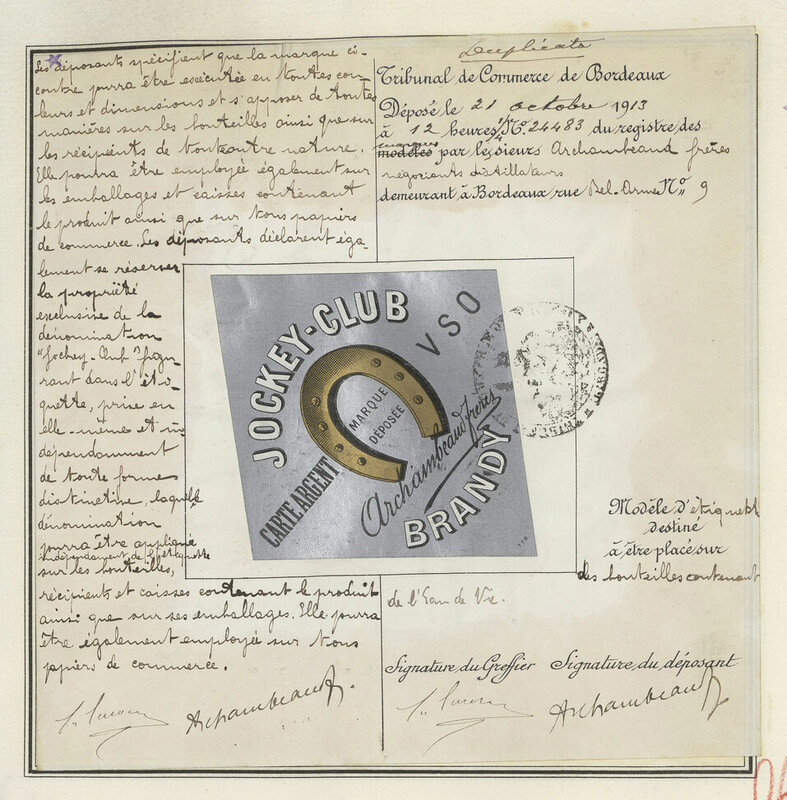 Les déposants spécifient que la marque ci-
contre pourra être exécutée en toutes cou-
leurs et dimensions et s'apposer de toutes
manières sur les bouteilles ainsi que sur
les récipients de toute autre nature.
Elle pourra être employée également sur
les emballages et caisses contenant
le produit ainsi que sur tous papiers
de commerce. Les déposants déclarent éga-
lement se réserver
la propriété
exclusive de la
dénomination
"Jockey-Club" figu-
rant dans l'éti-
quette, prise en
elle-même et in-
dépendamment
de toute forme
distinctive, laquelle
dénomination
pourra être appliquée
indépendamment de l'étiquette
sur les bouteilles,
récipients et caisses contenant le produit
ainsi que sur ses emballages. Elle pourra
être également employée sur tous
papiers de commerce.
Archambeaud
Duplicata
Tribunal de Commerce de Bordeaux
Déposé le 21 octobre 1913
à 12 heures 1/4 No. 24483 du registre des
marques
modèles par les sieurs Archambeaud frères
négociants distillateurs
demeurant à Bordeaux rue Bel-Orme No 9
JOCKEY-CLUB
VSO
MARQUE
DÉPOSÉE
CARTE ARGENT
Archambeaud Frères
BRANDY
Modèle d'étiquette
destiné
à être placé sur
des bouteilles contenant
de l'Eau de Vie.
Signature du Greffier Signature du déposant
Archambeaud